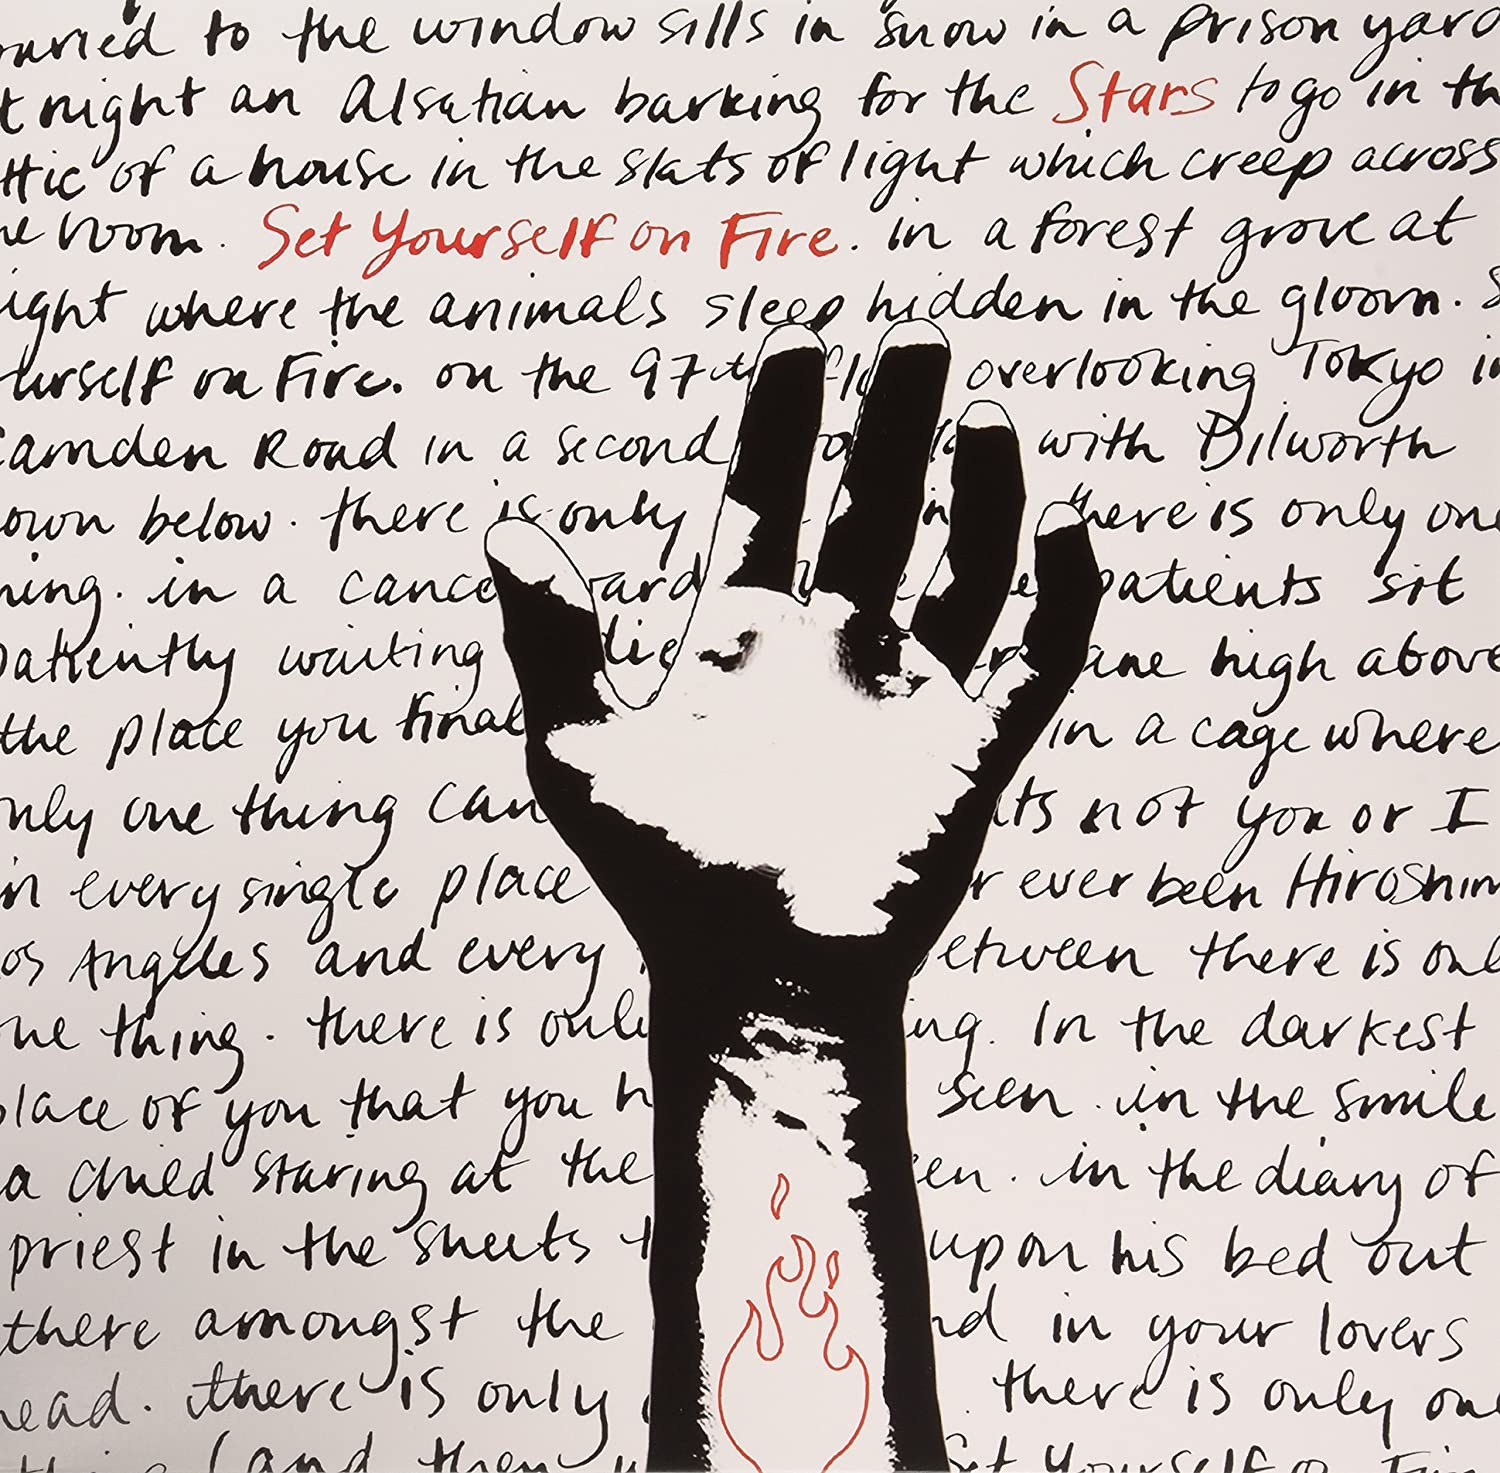 to the window sills in snow in a prison yard
night an Alsatian barking for the Stars to go in
of a house in the slats of light which creep across
room. Set Yourself on Fire. in a forest grove at
where the animals sleep hidden in the gloom.
on Fire. on the 97th overlooking Tokyo
Camden Road in a second with Dilworth
below. there is only there is only one
in a patients sit
patiently waiting die high above
the place you in a cage where
one thing can its not you or I
in every single place ever been
Angeles and every there is
thing. there is In the darkest
of you that you seen. in the smile
a child staring at the in the diary of
priest in the sheets upon his bed out
there amongst the in your lovers
there is only there is only
(and then